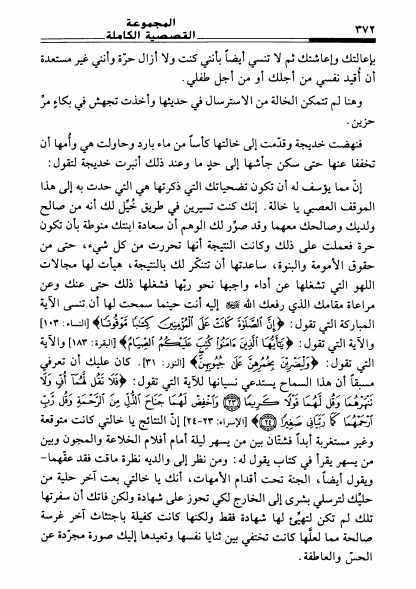 ٣٧٢
المجموعة
القصصية الكاملة
بإعالتك وإعاشتك ثم لا تنسي أيضاً بأنني كنت ولا أزال حرّة وأنني غير مستعدة
أن أُقيد نفسي من أجلك أو من أجل طفلي.
وهنا لم تتمكن الخالة من الاسترسال في حديثها وأخذت تجهش في بكاءٍ مرّ
حزين.
فنهضت خديجة وقدّمت إلى خالتها كأساً من ماء بارد وحاولت هي وأمها أن
تخففا عنها حتى سكن جأشها إلى حدٍ ما وعند ذلك أنبرت خديجة لتقول:
إنّ مما يؤسف له أن تكون تضحياتك التي ذكرتها هي التي حدت به إلى هذا
الموقف العصبي يا خالة. إنك كنت تسيرين في طريق خُيّل لك أنه من صالح
ولديك وصالحك معهما وقد صوّر لك الوهم أن سعادة ابنتك منوطة بأن تكون
حرة فعملت على ذلك وكانت النتيجة أنها تحررت من كل شيء، حتى من
حقوق الأمومة والبنوة، ساعدتها أن تتنكّر لك بالنتيجة، هيأت لها مجالات
اللهو التي تشغلها عن أداء واجبها نحو ربّها فشغلها ذلك حتى عنك وعن
مراعاة مقامك الذي رفعك الله ﷻ إليه أنت حينما سمحت لها أن تنسى الآية
المباركة التي تقول: ﴿إِنَّ الصَّلَوٰةَ كَانَتْ عَلَى الْمُؤْمِنِينَ كِتَٰبًا مَّوْقُوتًا﴾ [النساء: ١٠٣]
والآية التي تقول: ﴿يَٰٓأَيُّهَا الَّذِينَ ءَامَنُوا كُتِبَ عَلَيْكُمُ الصِّيَامُ﴾ [البقرة: ١٨٣] والآية
التي تقول: ﴿وَلْيَضْرِبْنَ بِخُمُرِهِنَّ عَلَىٰ جُيُوبِهِنَّ﴾ [النور: ٣١]. كان عليك أن تعرفي
مسبقاً أن هذا السماح يستدعي نسيانها للآية التي تقول: ﴿فَلَا تَقُل لَّهُمَآ أُفٍّ وَلَا
نَنْهَرْهُمَا وَقُل لَّهُمَا قَوْلًا كَرِيمًا ﴿٢٣﴾ وَاخْفِضْ لَهُمَا جَنَاحَ الذُّلِّ مِنَ الرَّحْمَةِ وَقُل رَّبِّ
ارْحَمْهُمَا كَمَا رَبَّيَانِي صَغِيرًا ﴿٢٤﴾﴾ [الإسراء: ٢٣-٢٤] إنّ النتائج يا خالتي كانت متوقعة
وغير مستغربة أبداً فشتّان بين من يسهر ليلة أمام أفلام الخلاعة والمجون وبين
من يسهر يقرأ في كتاب يقول له: ومن نظر إلى والديه نظرة ماقت فقد عقّهما-
ويقول أيضاً، الجنة تحت أقدام الأمهات، أنك يا خالتي بعت آخر حلية من
حليّك لترسلي بشرى إلى الخارج لكي تحوز على شهادة ولكن فاتك أن سفرتها
تلك لم تكن لتهيئ لها شهادة فقط ولكنها كانت كفيلة باجتثاث آخر غرسة
صالحة مما لعلّها كانت تختفي بين ثنايا نفسها وتعيدها إليك صورة مجرّدة عن
الحسّ والعاطفة.